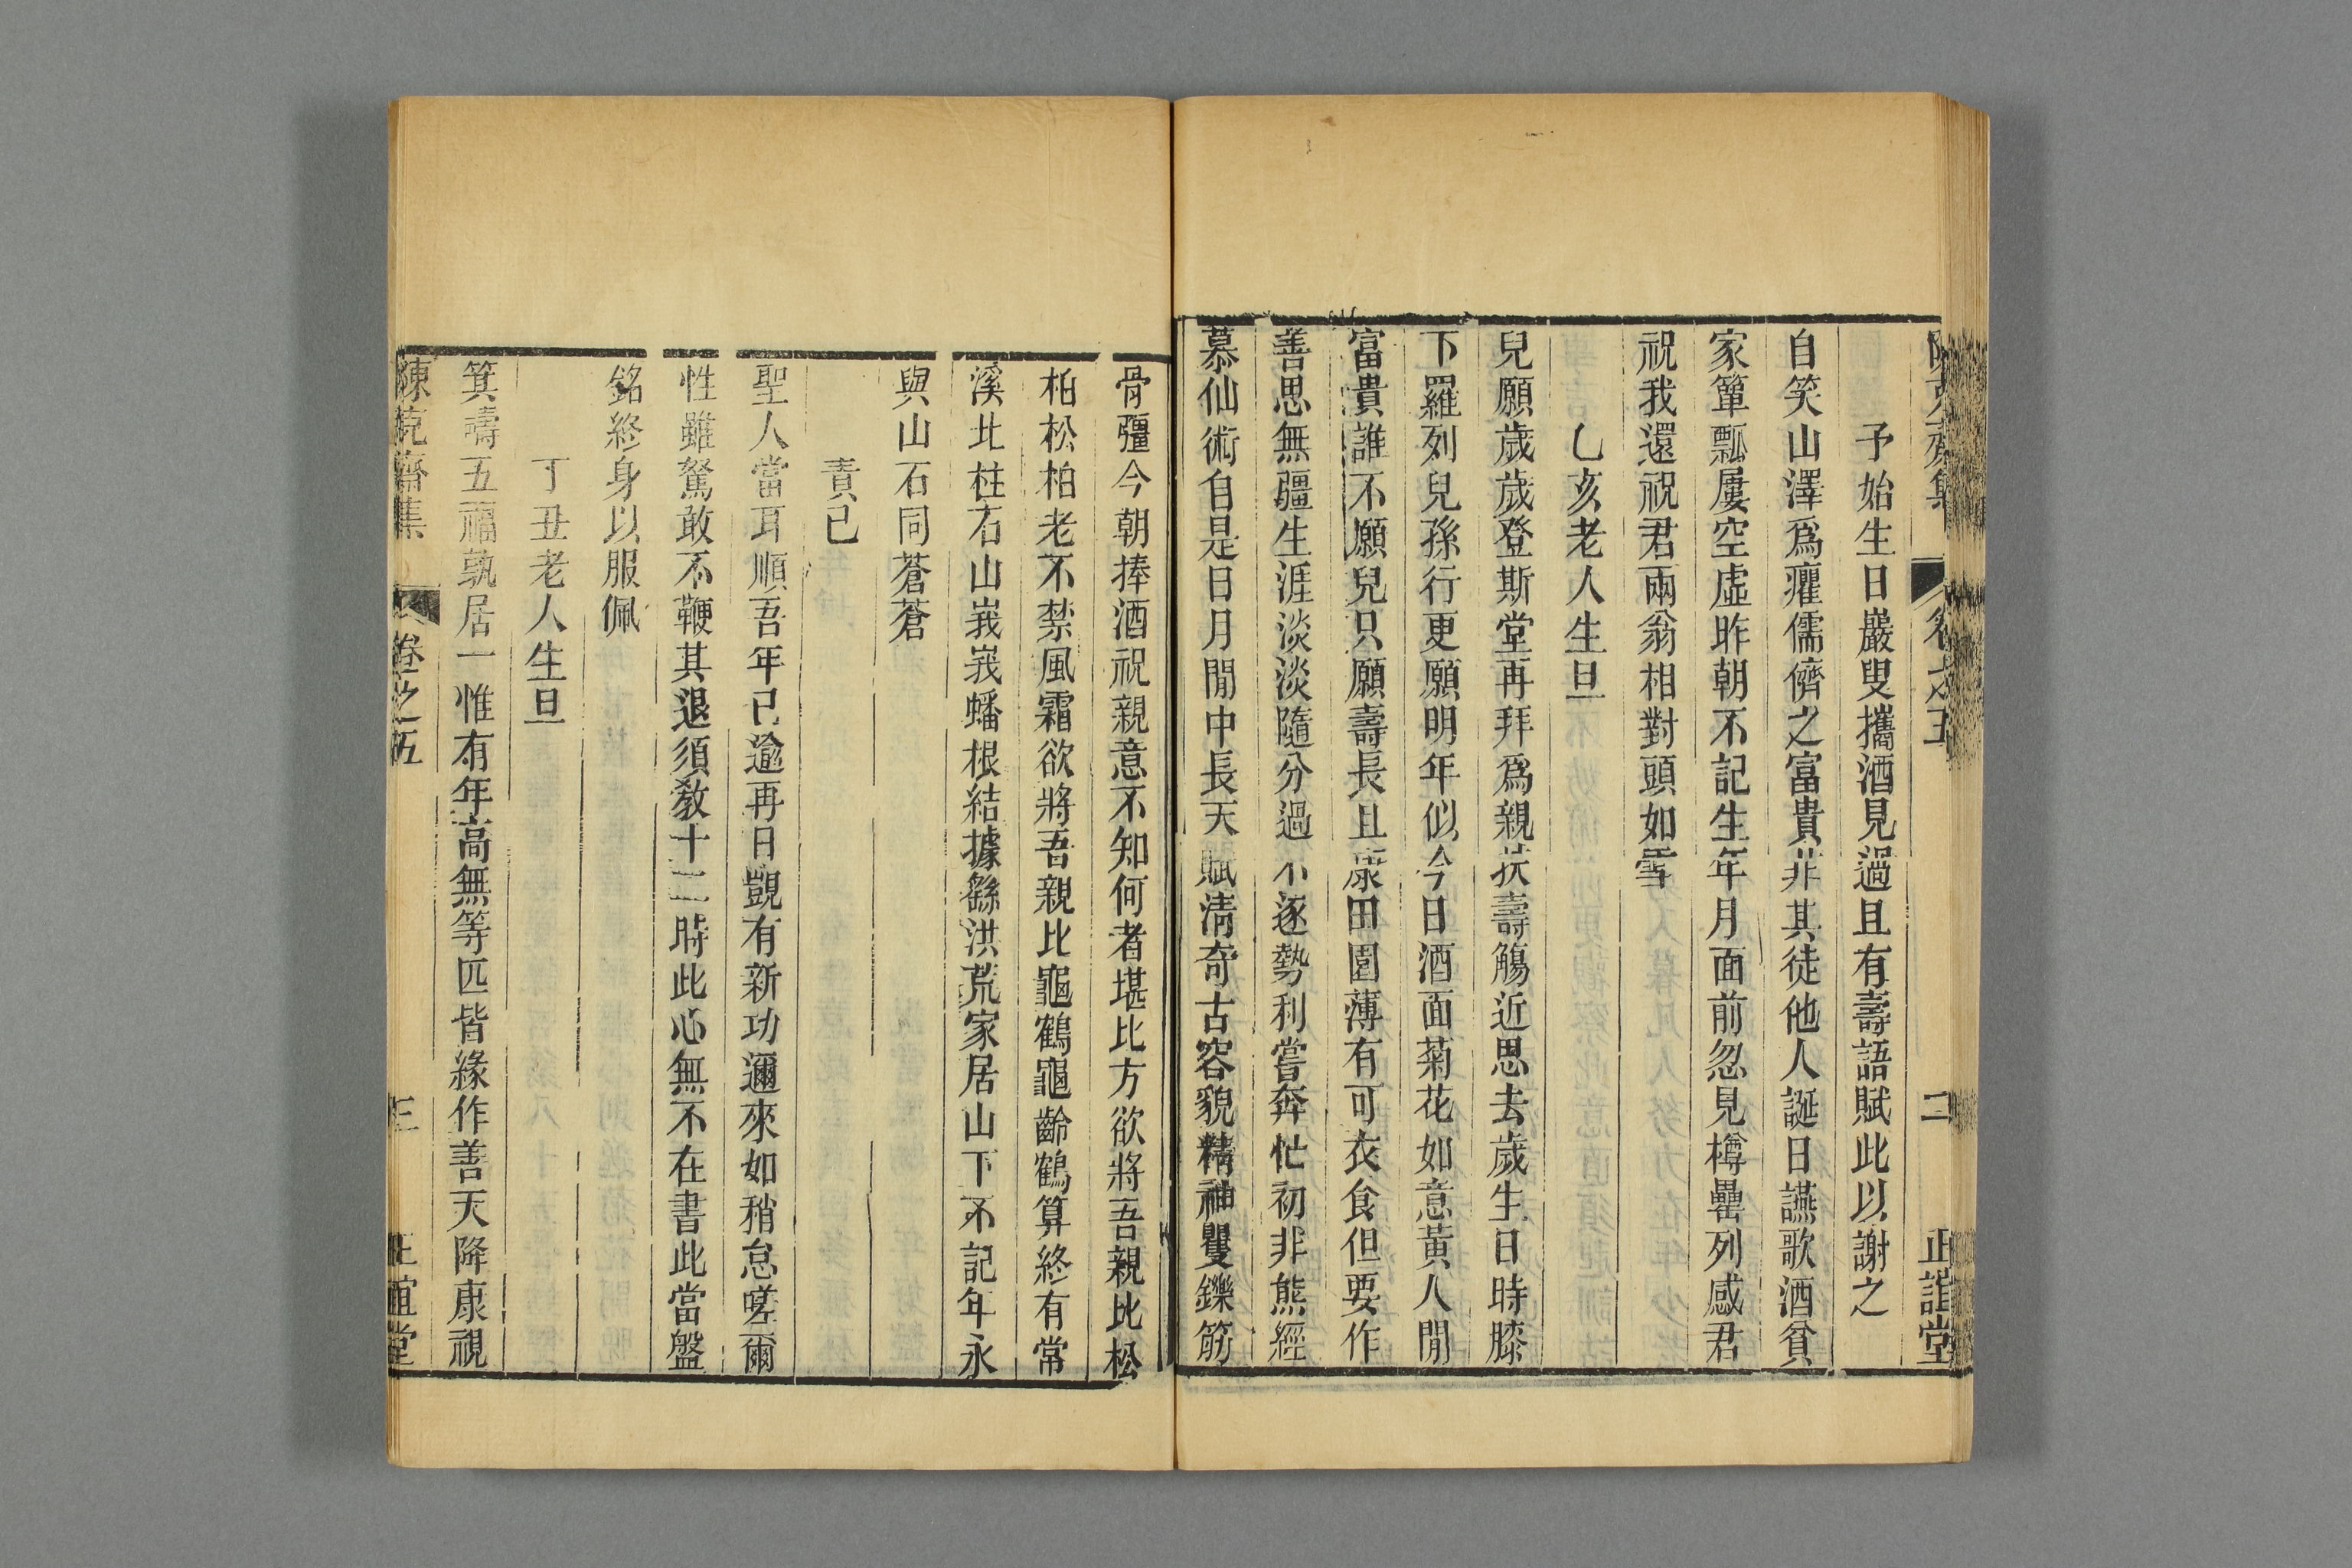 陳克齋集 卷之五 二 正誼堂
予始生日嚴叟攜酒見過且有壽語賦此以謝之
自笑山澤爲癯儒儕之富貴非其徒他人誕日讌歌酒貧
家簞瓢屢空虛昨朝不記生年月面前忽見樽罍列感君
祝我還祝君兩翁相對頭如雪
乙亥老人生旦
兒願歲歲登斯堂再拜爲親扶壽觴近思去歲生日時膝
下羅列兒孫行更願明年似今日酒面菊花如意黃人閒
富貴誰不願兒只願壽長且康田園薄有可衣食但要作
善思無疆生涯淡淡隨分過不逐勢利嘗奔忙初非熊經
慕仙術自是日月閒中長天賦清奇古容貌精神矍鑠筋
骨彊今朝捧酒祝親意不知何者堪比方欲將吾親比松
柏松柏老不禁風霜欲將吾親比龜鶴龜齡鶴算終有常
溪北柱石山峩峩蟠根結據繇洪荒家居山下不記年永
與山石同蒼蒼
責己
聖人當耳順吾年已逾再日覬有新功邇來如稍怠嗟爾
性雖駑敢不鞭其退須敎十二時此心無不在書此當盤
銘終身以服佩
丁丑老人生旦
箕疇五福孰居一惟有年高無等匹皆緣作善天降康視
陳克齋集 卷之五 三 正誼堂